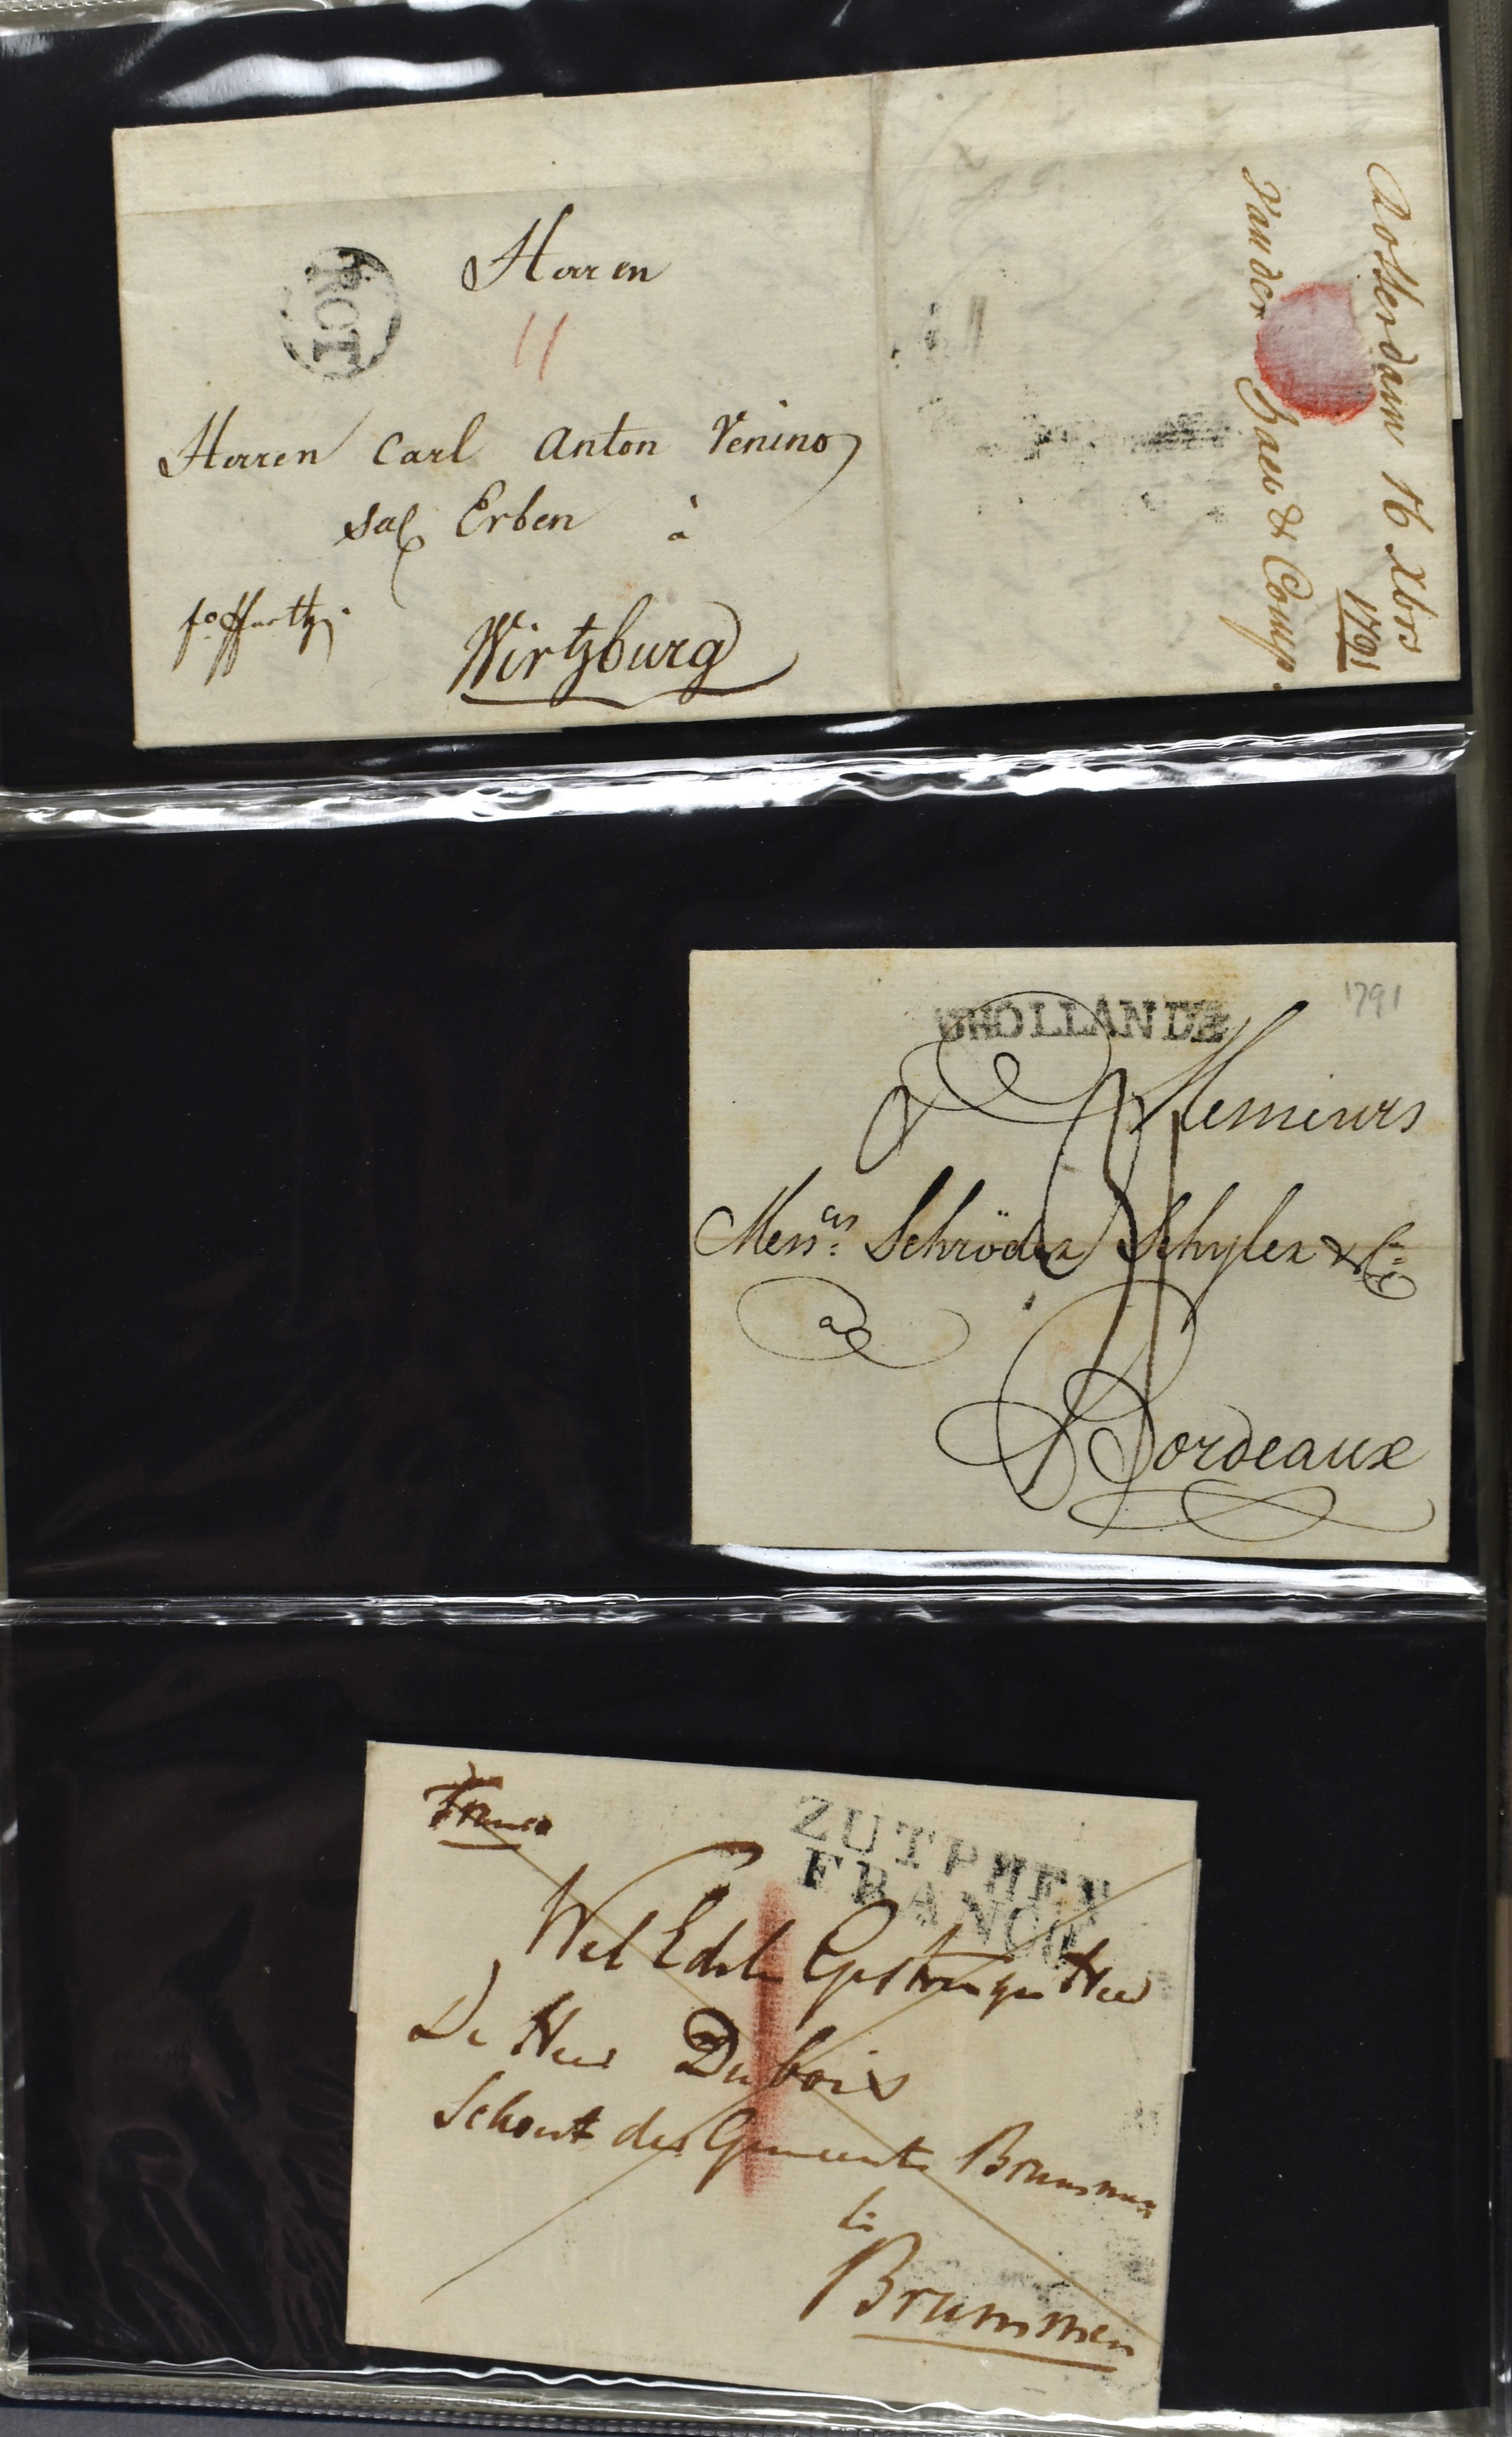 RCT
Herren
11
Herren Carl Anton Venino
sal Erben à
Wirtzburg
Rotterdam 16 Xbrs
1791
Van der & Comp.
DHOLLANDE
1791
Messieurs
Mess.rs Schröder Schyler & Co
a
Bordeaux
Franco
ZUTPHEN
FRANCO
Wel Edele Gestrenge Heer
De Heer Dubois
Schout der Gemeente Brummen
te
Brummen